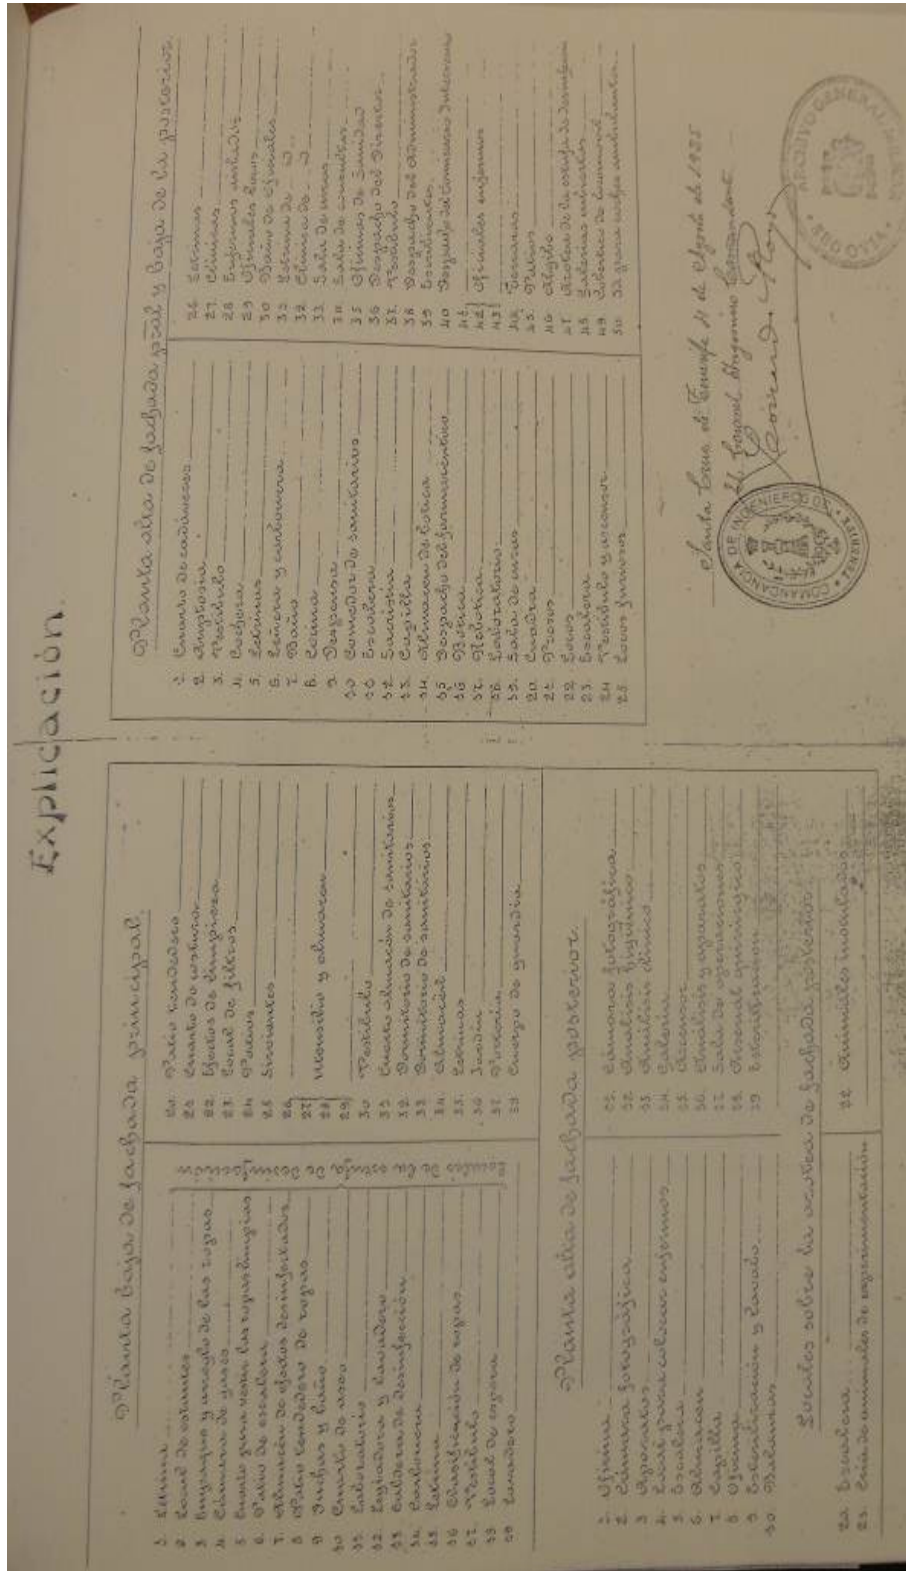 Explicación.
Planta baja de fachada principal.
1. Letrina
2. Local de estantes
3 Empaque y arreglo de las ropas
4. Cámara de gases
5 Cuarto para vestir las ropas limpias
6. Patio de escalera
7. Almacén de efectos desinfectados
8 Patio tendedero de ropas
9 Duchas y baño
10 Cuarto de aseo
11. Laboratorio
12 Legiadora y lavadero
13 Caldera de desinfección
14 Carbonera
15. Letrina
16 Clasificación de ropas
17. Vestíbulo
18 Local de espera
19 Lavadero
Locales de la estufa de desinfección
20. Patio tendedero
21 Cuarto de costura
22. Efectos de limpieza
23. Local de filtros
24 Patios
25 Sirvientes
26
27
28 Utensilio y almacen
29
30 Vestíbulo
31 Cuarto almacén de sanitarios
32. Dormitorio de sanitarios
33 Dormitorio de sanitarios
34. Almacén
35. Letrinas
36 Jardín
37. Portería
38 Cuerpo de guardia
Planta alta de fachada posterior.
1. Oficina
2. Cámara fotográfica
3 Aparatos
4. Local para colocar enfermos
5. Escalera
6. Almacen
7. Capilla
8 Oficina
9 Esterilización y lavabo
10 Balanzas
11. Cámara fotográfica
12 Análisis químico
13. Análisis clínico
14 Galería
15. Ascensor
16. Análisis y aparatos
17. Sala de operaciones
18. Arsenal quirúrgico
19 Esterilización
Locales sobre la azotea de fachada posterior
20. Escalera
21. Cría de animales de experimentación
22 Animales inoculados
Planta alta de fachada pral y baja de la posterior.
1. Cuarto de cadáveres
2. Autopsia
3. Vestíbulo
4. Cochera
5. Letrinas
6. Leñera y carbonera
7. Baño
8. Cocina
9. Despensa
10 Comedor de sanitarios
11 Escalera
12 Sacristía
13. Capilla
14. Almacen de botica
15 Despacho del farmacéutico
16 Botica
17. Rebotica
18. Laboratorio
19. Sala de curas
20. Cuadra
21. Presos
22 Locos
23. Escalera
24 Vestíbulo y ascensor
25 Locos furiosos
26. Letrinas
27. Clínicas
28 Enfermos aislados
29 Oficiales locos
30 Baño de oficiales
31 Letrina de id
32 Clínica de id
33. Sala de curas
34. Sala de consultas
35 Oficinas de Sanidad
36 Despacho del Director
37. Vestíbulo
38 Despacho del Administrador
39 Escribientes
40 Despacho del Comisario Interventor
41.
42 Oficiales enfermos
43
44. Terrazas
45. Patios
46 Algibe
47. Azotea de la estufa de desinfeccion
48. Galerías cubiertas
49.
50.
Santa Cruz de Tenerife 21 de Agosto de 1925
El Coronel Ingeniero Comandante
COMANDANCIA DE INGENIEROS DE TENERIFE
ARCHIVO GENERAL MILITAR
SEGOVIA